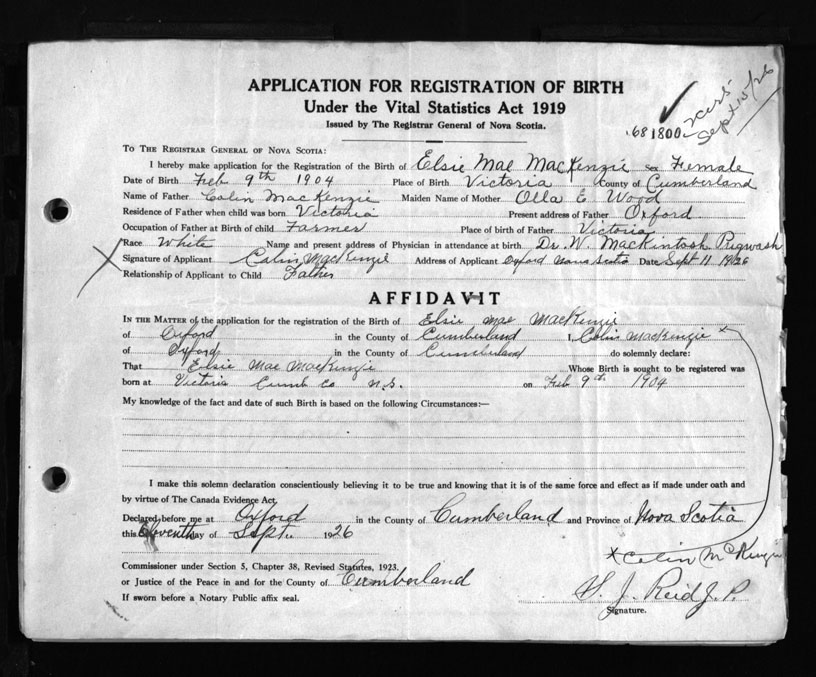 APPLICATION FOR REGISTRATION OF BIRTH
Under the Vital Statistics Act 1919
Issued by The Registrar General of Nova Scotia.
681800
Sept 15/26
To The Registrar General of Nova Scotia:
I hereby make application for the Registration of the Birth of Elsie Mae MacKenzie sex Female
Date of Birth Feb 9th 1904 Place of Birth Victoria County of Cumberland
Name of Father Colin MacKenzie Maiden Name of Mother Olla E. Wood
Residence of Father when child was born Victoria Present address of Father Oxford
Occupation of Father at Birth of child Farmer Place of birth of Father Victoria
Race White Name and present address of Physician in attendance at birth Dr. W. MacKintosh Pugwash
Signature of Applicant Colin MacKenzie Address of Applicant Oxford Nova Scotia Date Sept 11 1926
Relationship of Applicant to Child Father
AFFIDAVIT
In the Matter of the application for the registration of the Birth of Elsie Mae MacKenzie
of Oxford in the County of Cumberland I, Colin MacKenzie x
of Oxford in the County of Cumberland do solemnly declare:
That Elsie Mae MacKenzie Whose Birth is sought to be registered was
born at Victoria Cumb Co N.S. on Feb 9th 1904
My knowledge of the fact and date of such Birth is based on the following Circumstances:—
I make this solemn declaration conscientiously believing it to be true and knowing that it is of the same force and effect as if made under oath and
by virtue of The Canada Evidence Act.
Declared before me at Oxford in the County of Cumberland and Province of Nova Scotia
this Eleventh day of Septr 1926
x Colin McKenzie
Commissioner under Section 5, Chapter 38, Revised Statutes, 1923.
or Justice of the Peace in and for the County of Cumberland
If sworn before a Notary Public affix seal.
J. Reid J. P.
Signature.